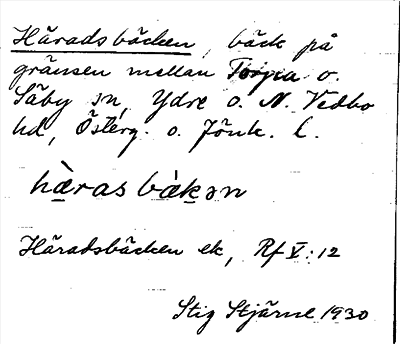 Häradsbäcken, bäck på
gränsen mellan Torpa o.
Säby sn, Ydre o. N. Vedbo
hd, Österg. o. Jönk. l.
hæ̀ras bàkən
Häradsbäcken ek, Rf V:12
Stig Stjärne 1930